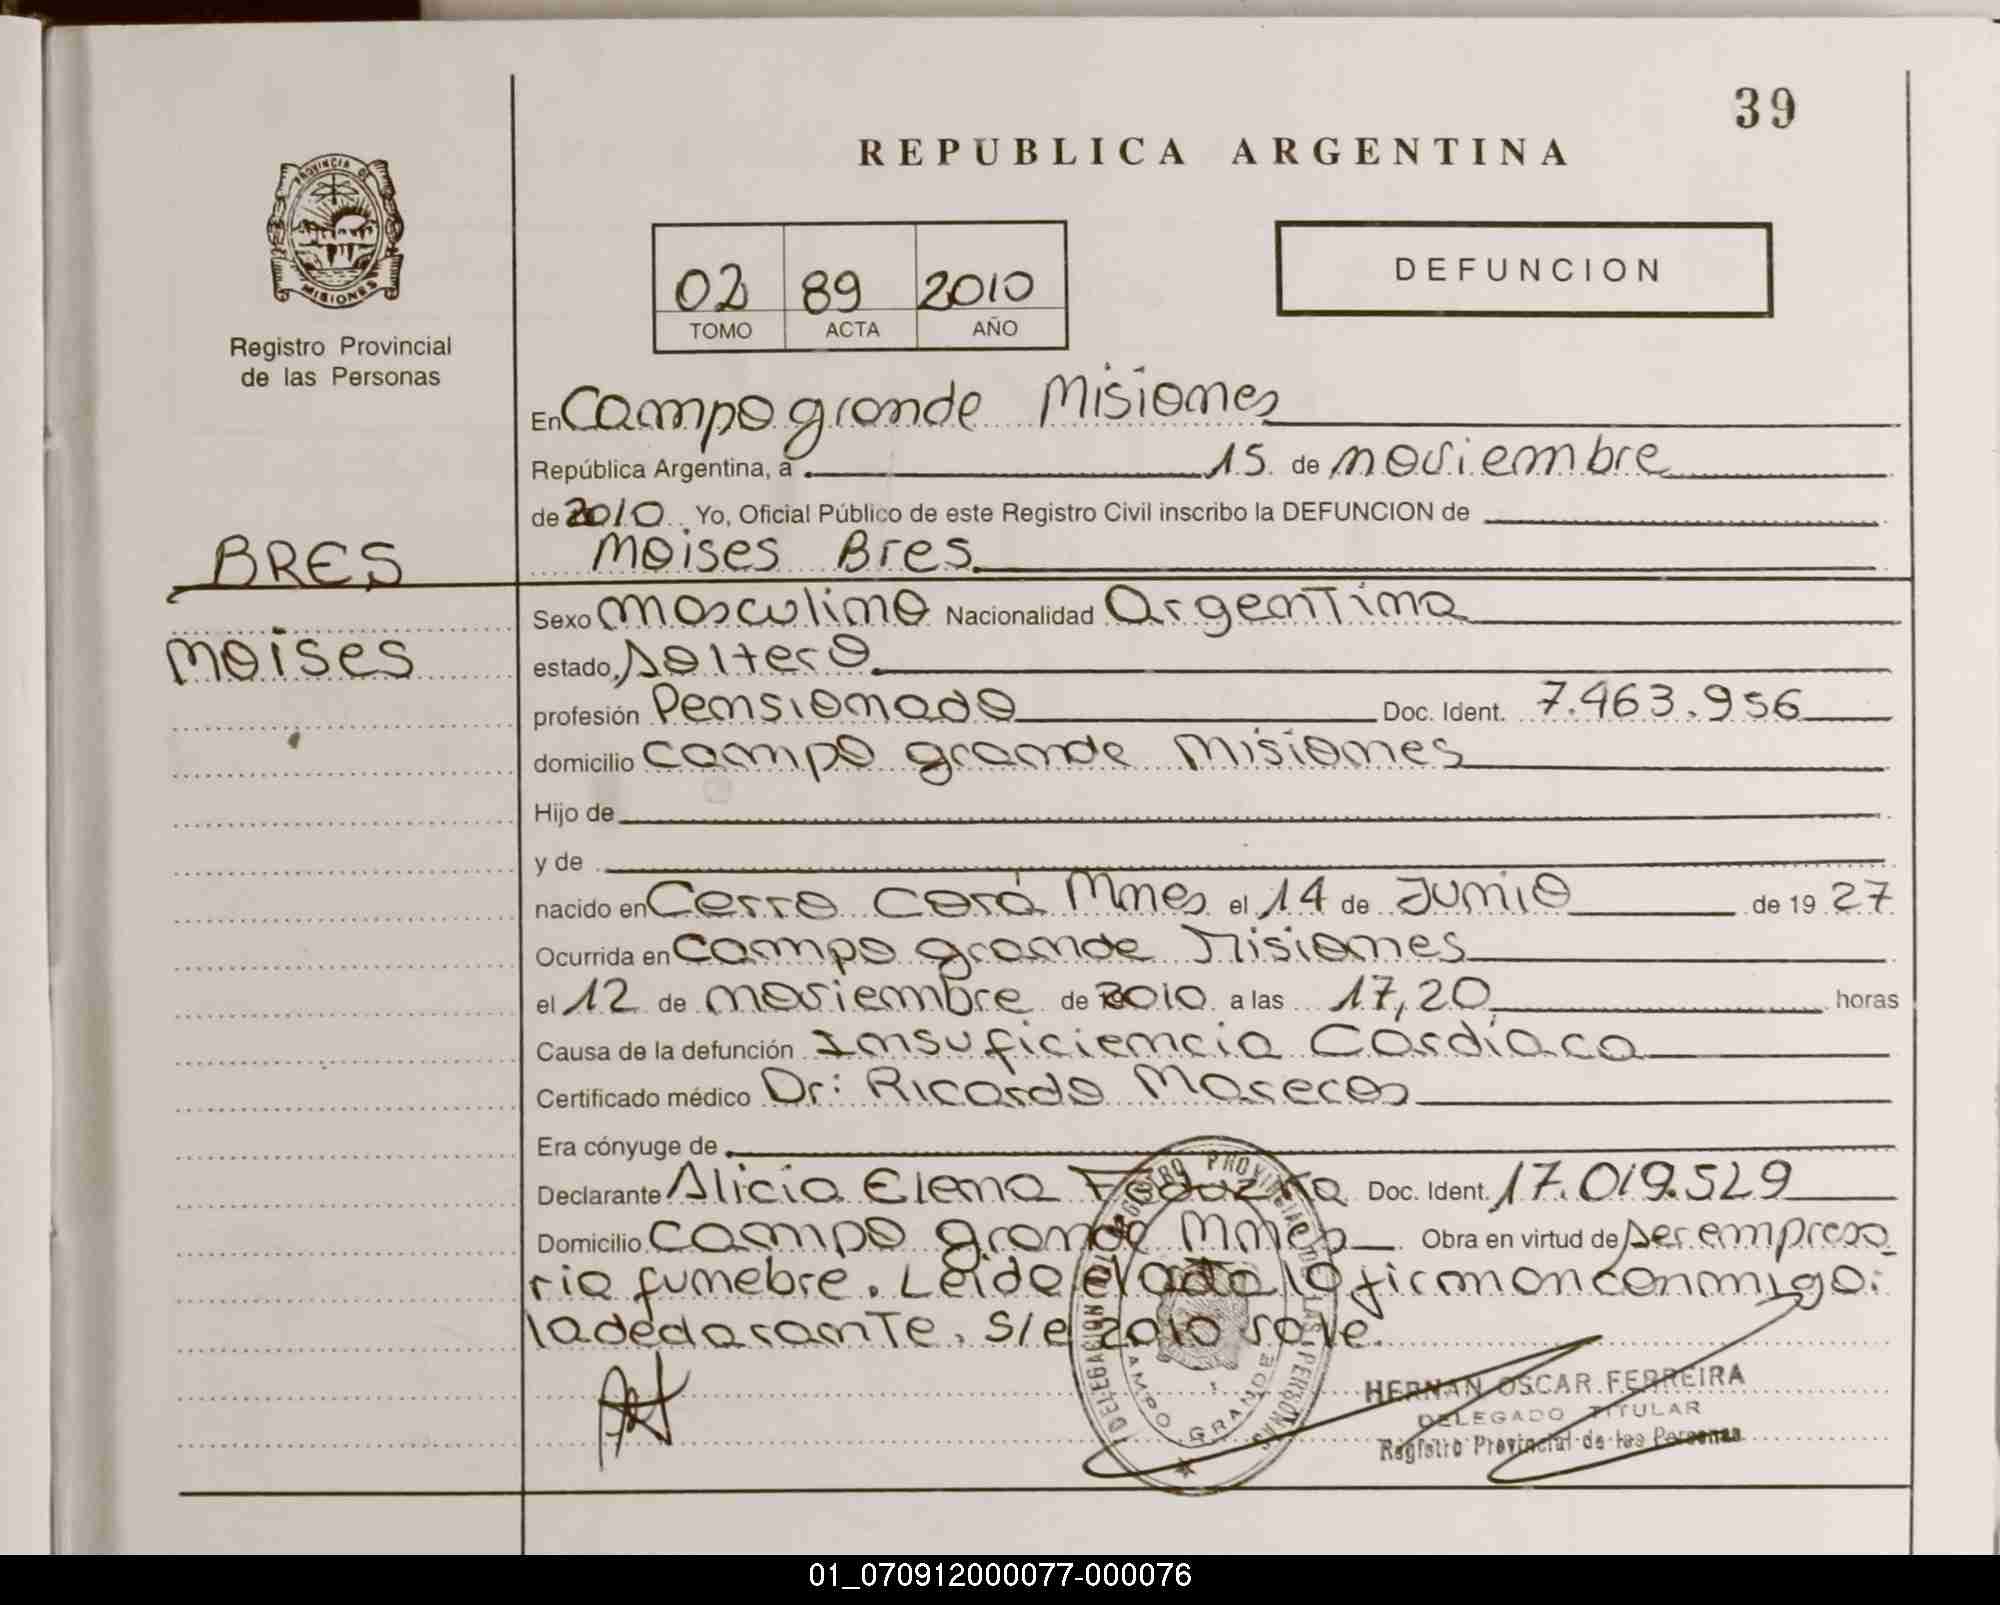 39
REPUBLICA ARGENTINA
PROVINCIA DE
MISIONES
Registro Provincial
de las Personas
02 89 2010
TOMO ACTA AÑO
DEFUNCION
En Campo grande Misiones
República Argentina, a 15 de noviembre
de 2010 Yo, Oficial Público de este Registro Civil inscribo la DEFUNCION de
Moises Bres
BRES
Moises
Sexo masculino Nacionalidad Argentina
estado, Soltero
profesión Pensionado Doc. Ident. 7.463.956
domicilio Campo grande Misiones
Hijo de
y de
nacido en Cerro Corá Mnes el 14 de Junio de 19 27
Ocurrida en Campo grande Misiones
el 12 de noviembre de 2010 a las 17,20 horas
Causa de la defunción Insuficiencia Cardíaca
Certificado médico Dr: Ricardo Marecos
Era cónyuge de
Declarante Alicia Elena Doc. Ident. 17.019.529
Domicilio Campo grande Mnes Obra en virtud de ser empresa
ria fumebre. Leida el acta la firman conmigo:
la declarante. S/e 2010 vale.
DELEGACION REGISTRO PROVINCIAL DE LAS PERSONAS
CAMPO GRANDE
HERNAN OSCAR FERREIRA
DELEGADO TITULAR
Registro Provincial de las Personas
01_070912000077-000076